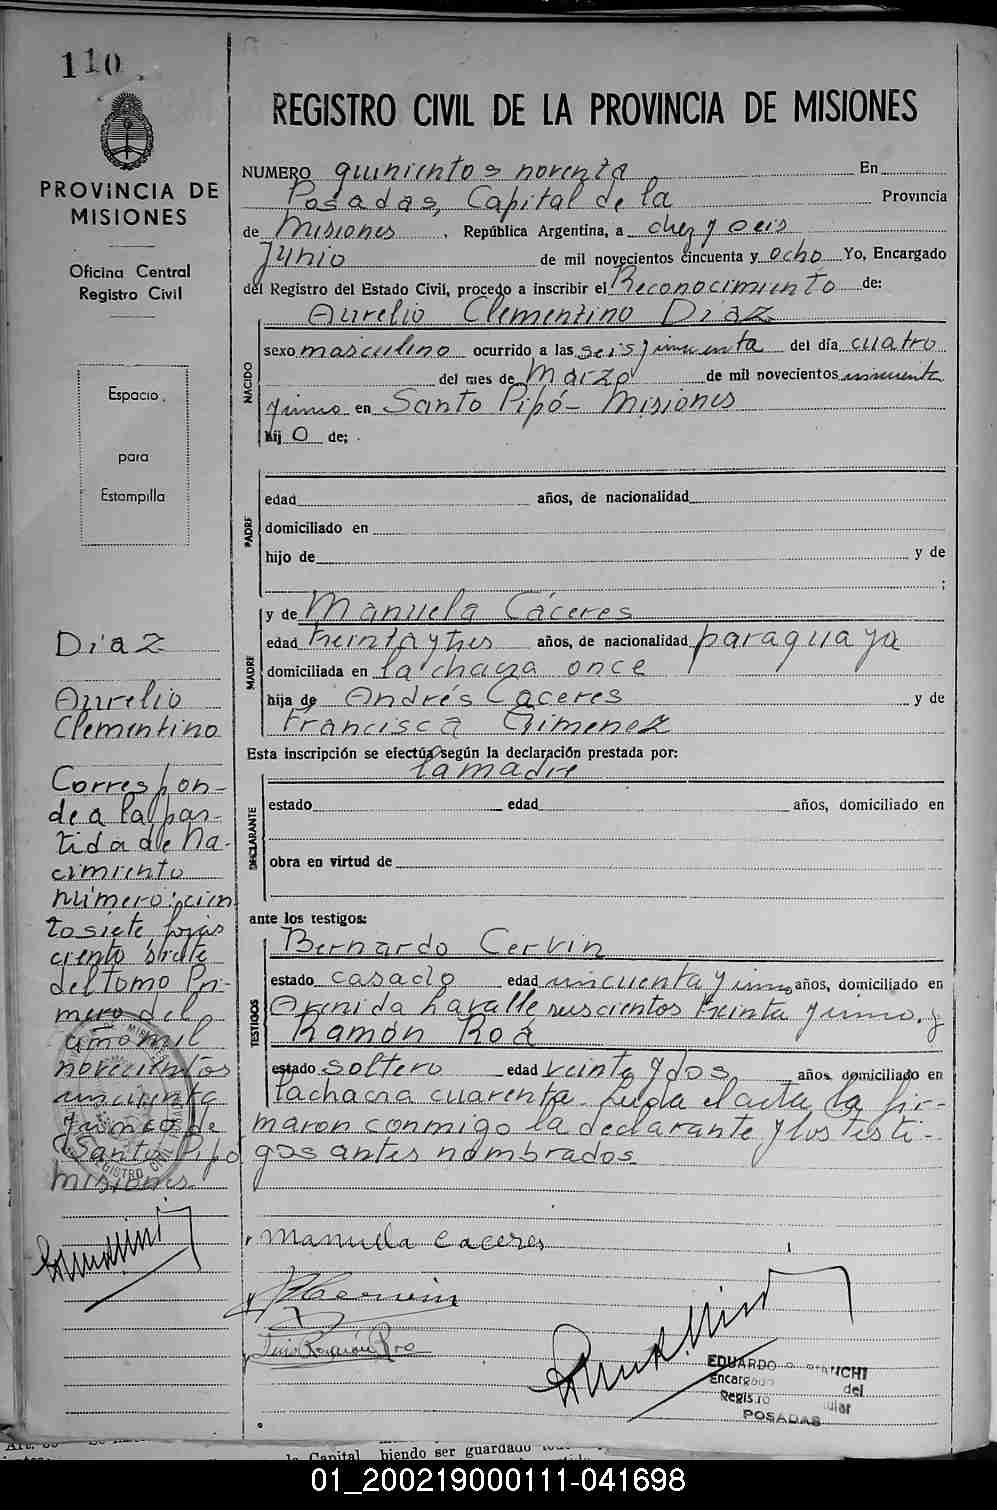 110
PROVINCIA DE
MISIONES
Oficina Central
Registro Civil
Espacio
para
Estampilla
Diaz
Aurelio
Clementino
Correspon-
de a la par-
tida de Na-
cimiento
número: cien
to siete fojas
ciento siete
del tomo Pri-
mero del
año mil
novecientos
cincuenta
y cinco de
Santo Pipó
Misiones.
REGISTRO CIVIL DE LA PROVINCIA DE MISIONES
NUMERO quinientos noventa En
Posadas, Capital de la Provincia
de Misiones, República Argentina, a diez y seis
Junio de mil novecientos cincuenta y ocho Yo, Encargado
del Registro del Estado Civil, procedo a inscribir el Reconocimiento de:
Aurelio Clementino Diaz
NACIDO
sexo masculino ocurrido a las seis y cincuenta del día cuatro
del mes de Marzo de mil novecientos cincuenta
y cinco en Santo Pipó - Misiones
hijo de:
PADRE
edad años, de nacionalidad
domiciliado en
hijo de y de
;
MADRE
y de Manuela Cáceres
edad treinta y tres años, de nacionalidad paraguaya
domiciliada en la chacra once
hija de Andrés Cáceres y de
Francisca Gimenez
Esta inscripción se efectúa según la declaración prestada por:
la madre
DECLARANTE
estado edad años, domiciliado en
obra en virtud de
ante los testigos:
TESTIGOS
Bernardo Cervin
estado casado edad cincuenta y cinco años, domiciliado en
Avenida Lavalle seiscientos treinta y cinco. y
Ramón Roa
estado soltero edad veinte y dos años, domiciliado en
la chacra cuarenta. Leída el acta la fir-
maron conmigo la declarante y los testi-
gos antes nombrados
Manuela caceres
B Cervin
Luis Ramón Roa
EDUARDO
Encargado del
Registro
POSADAS
la Capital
biendo ser guardado
01_200219000111-041698